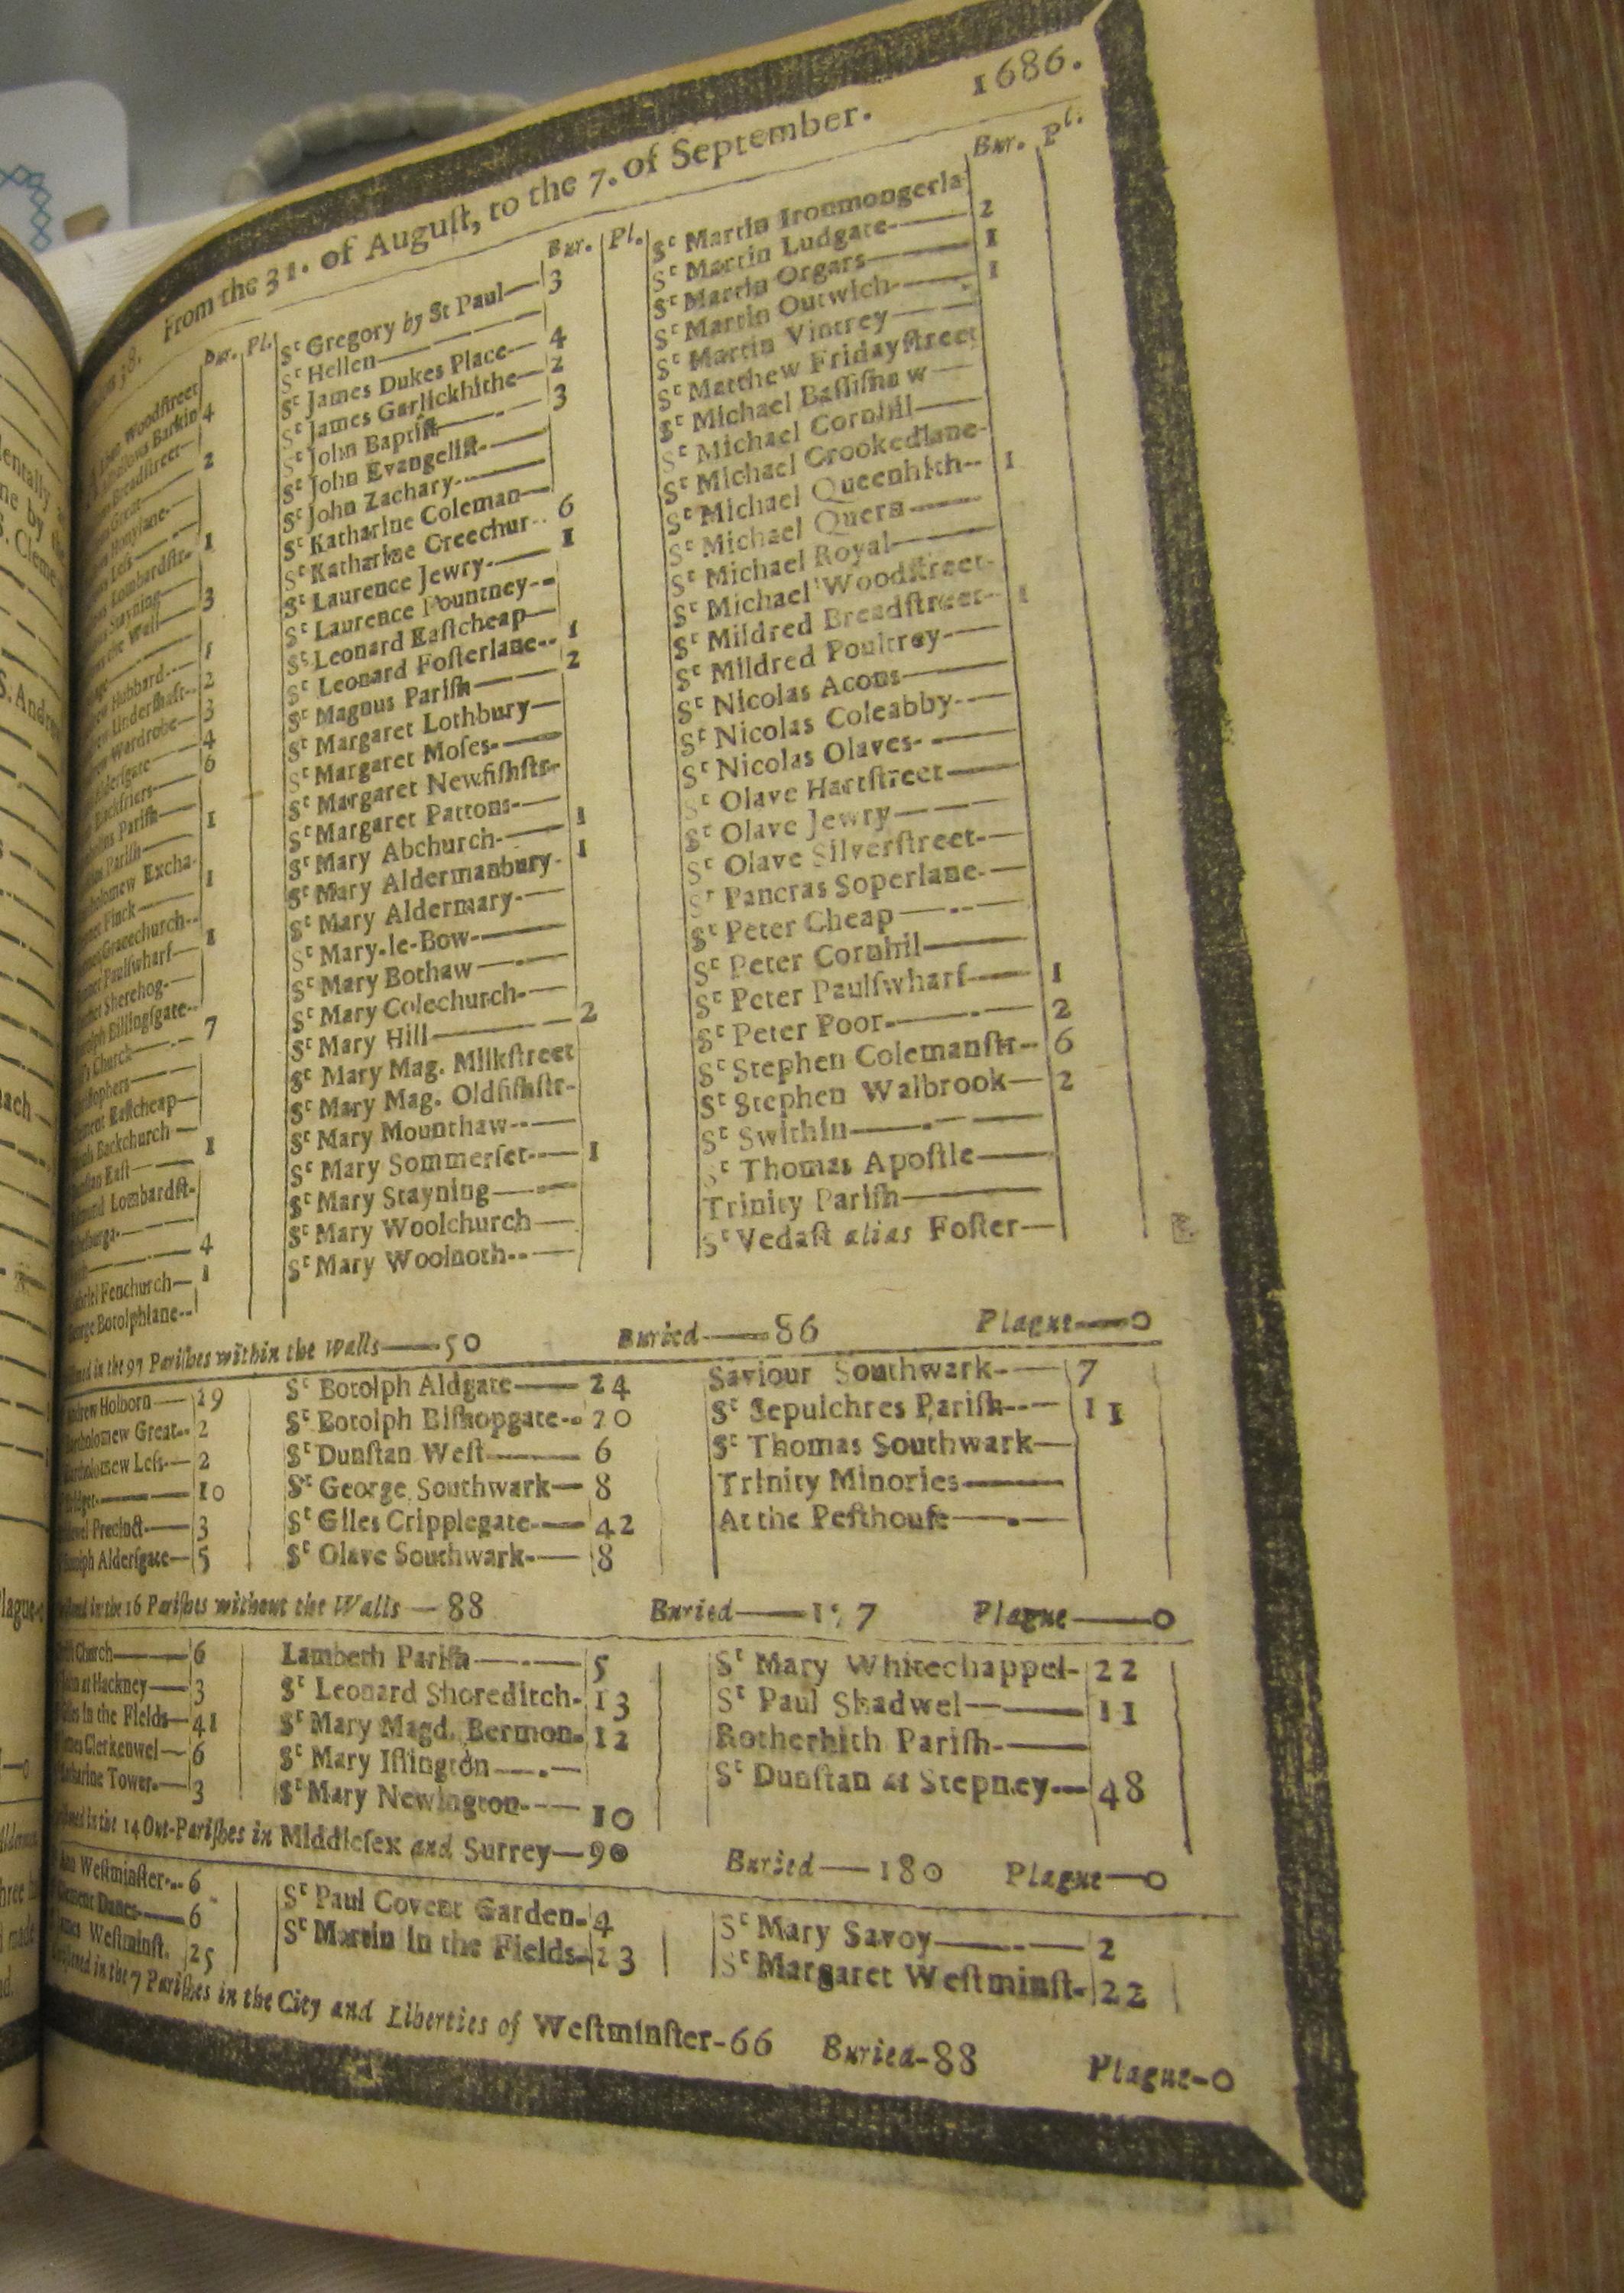 From the 31. of August, to the 7. of September. 1686.
Bur. Pl.
Woodstreet
Barkin 4
Breadstreet
Great 2
Honylane
Less
Lombardstr. 1
Stayning
the Wall 3
Hubbard 1
Undershaft 2
Wardrobe 3
Aldersgate 4
Blackfriers 6
Parish
Parish 1
Excha.
Finck 1
Gracechurch
Paulswharf 1
Sherehog
Billingsgate
Church 7
Eastcheap
Backchurch
East 1
Lombardst.
4
Fenchurch 1
Botolphlane
Bur. Pl.
St Gregory by St Paul 3
St Hellen
St James Dukes Place 4
St James Garlickhithe 2
St John Baptist 3
St John Evangelist
St John Zachary
St Katharine Coleman
St Katharine Creechur 6
St Laurence Jewry 1
St Laurence Pountney
St Leonard Eastcheap
St Leonard Fosterlane 1
St Magnus Parish 2
St Margaret Lothbury
St Margaret Moses
St Margaret Newfishstr
St Margaret Pattons
St Mary Abchurch 1
St Mary Aldermanbury 1
St Mary Aldermary
St Mary-le-Bow
St Mary Bothaw
St Mary Colechurch
St Mary Hill 2
St Mary Mag. Milkstreet
St Mary Mag. Oldfishstr
St Mary Mounthaw
St Mary Sommerset 1
St Mary Stayning
St Mary Woolchurch
St Mary Woolnoth
Bur. Pl.
St Martin Ironmongerla
St Martin Ludgate 2
St Martin Orgars 1
St Martin Outwich 1
St Martin Vintrey
St Matthew Fridaystreet
St Michael Bassishaw
St Michael Cornhill
St Michael Crookedlane
St Michael Queenhith 1
St Michael Quern
St Michael Royal
St Michael Woodstreet
St Mildred Breadstreet 1
St Mildred Poultrey
St Nicolas Acons
St Nicolas Coleabby
St Nicolas Olaves
St Olave Hartstreet
St Olave Jewry
St Olave Silverstreet
St Pancras Soperlane
St Peter Cheap
St Peter Cornhil
St Peter Paulswharf 1
St Peter Poor 2
St Stephen Colemanstr 6
St Stephen Walbrook 2
St Swithin
St Thomas Apostle
Trinity Parish
St Vedast alias Foster
in the 97 Parishes within the Walls 50 Buried 86 Plague 0
Andrew Holborn 29
Bartholomew Great 2
Bartholomew Less 2
Bridget 10
Precinct 3
Aldersgate 5
St Botolph Aldgate 24
St Botolph Bishopgate 20
St Dunstan West 6
St George Southwark 8
St Giles Cripplegate 42
St Olave Southwark 8
Saviour Southwark 7
St Sepulchres Parish 11
St Thomas Southwark
Trinity Minories
At the Pesthouse
in the 16 Parishes without the Walls 88 Buried Plague 0
Church 6
at Hackney 3
Giles in the Fields 41
Clerkenwel 6
Katharine Tower 3
Lambeth Parish 5
St Leonard Shoreditch 13
St Mary Magd. Bermon 12
St Mary Islington
St Mary Newington 10
St Mary Whitechappel 22
St Paul Shadwel 11
Rotherhith Parish
St Dunstan at Stepney 48
in the 14 Out-Parishes in Middlesex and Surrey 90 Buried 180 Plague 0
Ann Westminster 6
Clement Danes 6
James Westminst. 25
St Paul Covent Garden 4
St Martin in the Fields 23
St Mary Savoy 2
St Margaret Westminst 22
in the 7 Parishes in the City and Liberties of Westminster 66 Buried 88 Plague 0